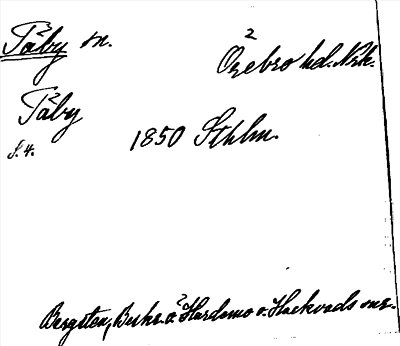 Täby sn.
Örebro hd. Nrk.
Täby
S. 4.
1850 Sthlm.
Bergsten, Beskr. ö. Hardemo o. Hackvads snr.